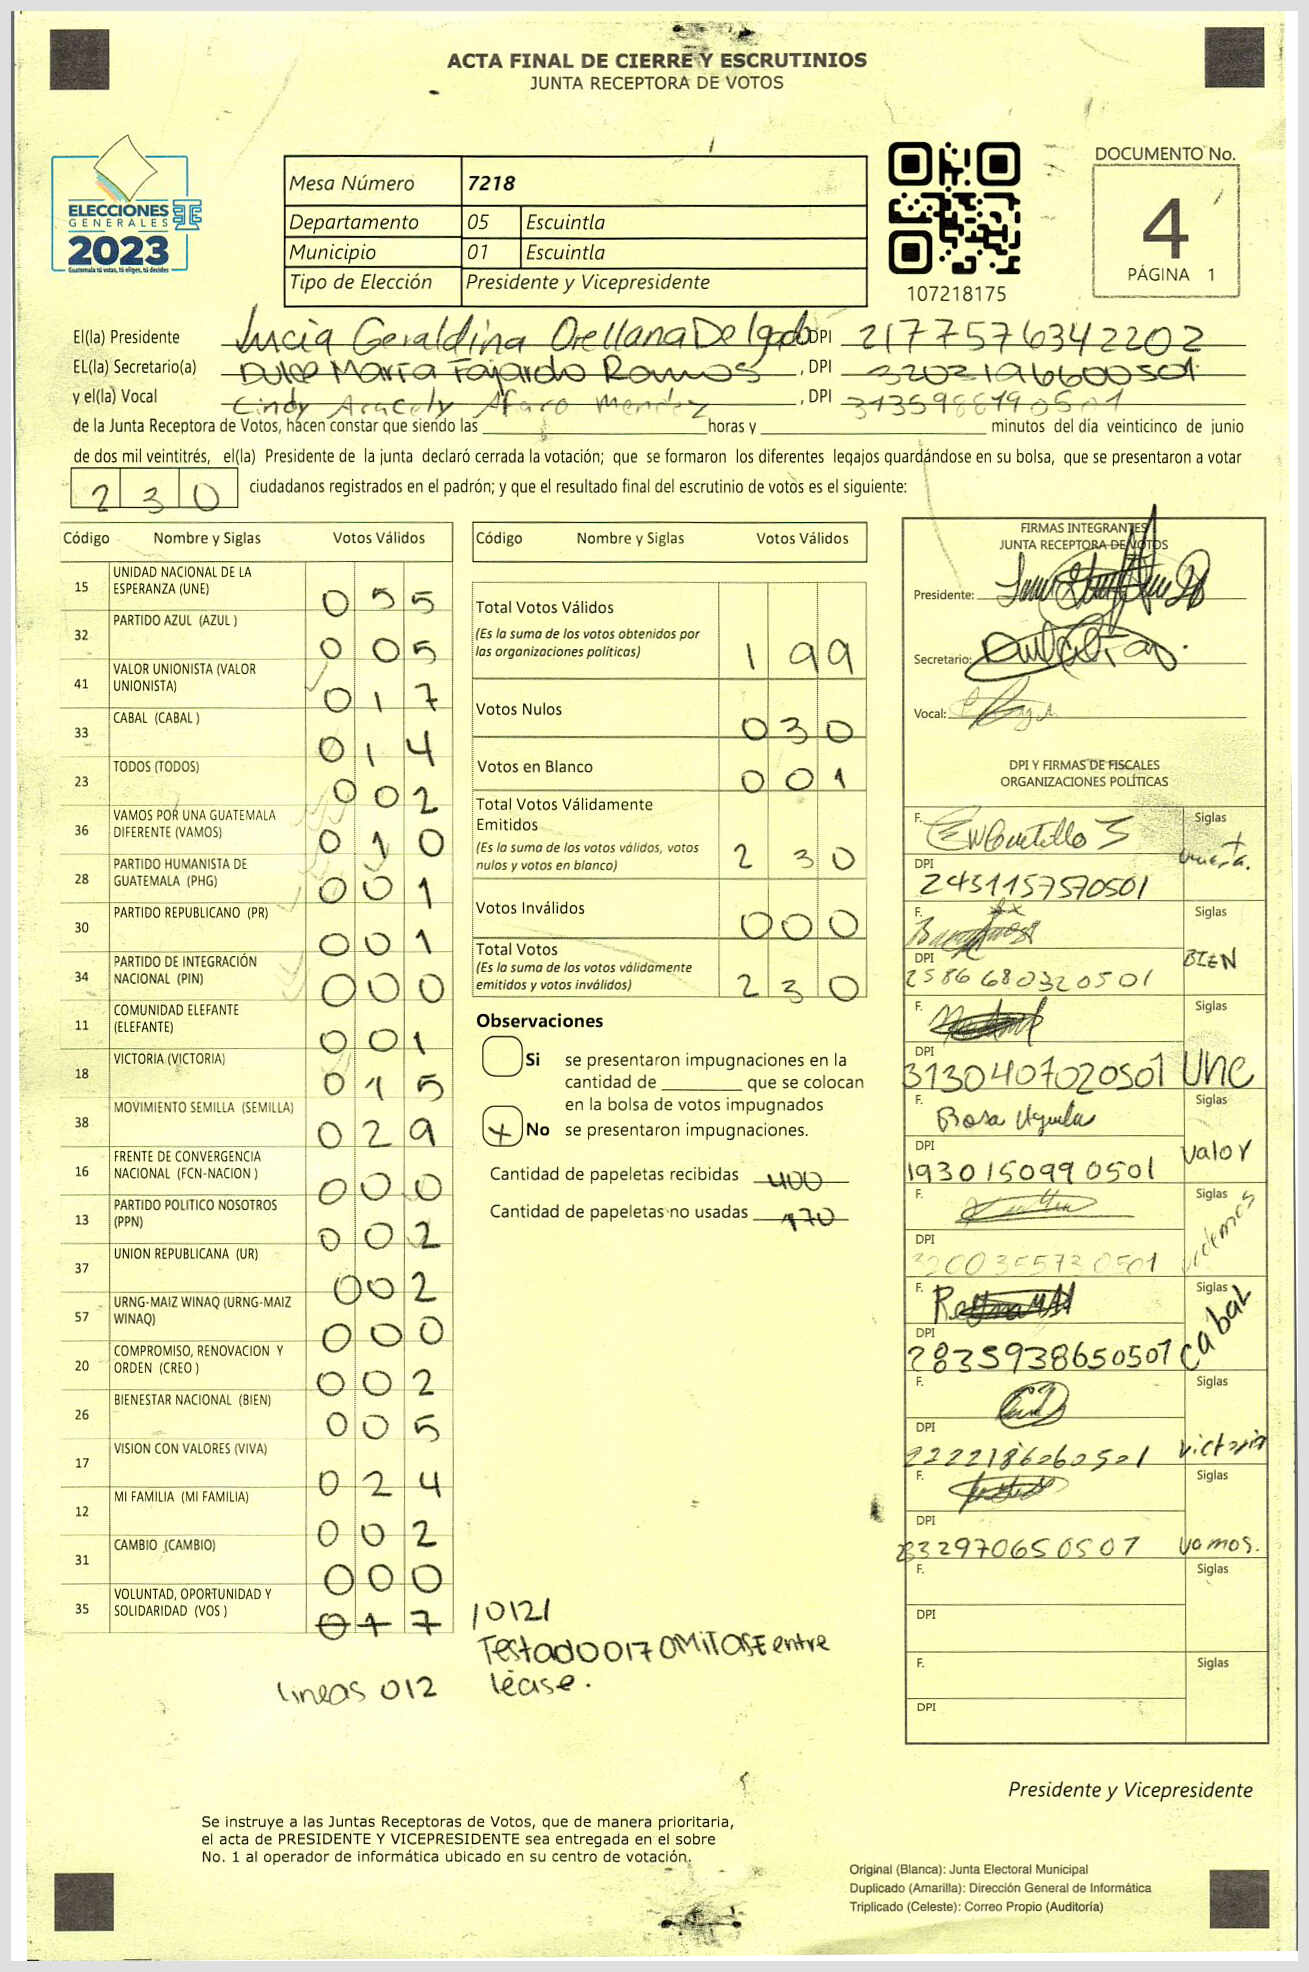 ACTA FINAL DE CIERRE Y ESCRUTINIOS
JUNTA RECEPTORA DE VOTOS
ELECCIONES
GENERALES
2023
Guatemala tú votas, tú eliges, tú decides
Mesa Número 7218
Departamento 05 Escuintla
Municipio 01 Escuintla
Tipo de Elección Presidente y Vicepresidente
107218175
DOCUMENTO No.
4
PÁGINA 1
El(la) Presidente Lucia Geraldina Orellana Delgado DPI 2177576342202
EL(la) Secretario(a) Dulce María Fajardo Ramos, DPI 3202196600501
y el(la) Vocal Cindy Aracely Alfaro Mendez, DPI 3135988190501
de la Junta Receptora de Votos, hacen constar que siendo las ____ horas y ____ minutos del día veinticinco de junio
de dos mil veintitrés, el(la) Presidente de la junta declaró cerrada la votación; que se formaron los diferentes legajos guardándose en su bolsa, que se presentaron a votar
230 ciudadanos registrados en el padrón; y que el resultado final del escrutinio de votos es el siguiente:
Código Nombre y Siglas Votos Válidos
15 UNIDAD NACIONAL DE LA ESPERANZA (UNE) 055
32 PARTIDO AZUL (AZUL ) 005
41 VALOR UNIONISTA (VALOR UNIONISTA) 017
33 CABAL (CABAL ) 014
23 TODOS (TODOS) 002
36 VAMOS POR UNA GUATEMALA DIFERENTE (VAMOS) 010
28 PARTIDO HUMANISTA DE GUATEMALA (PHG) 001
30 PARTIDO REPUBLICANO (PR) 001
34 PARTIDO DE INTEGRACIÓN NACIONAL (PIN) 000
11 COMUNIDAD ELEFANTE (ELEFANTE) 001
18 VICTORIA (VICTORIA) 015
38 MOVIMIENTO SEMILLA (SEMILLA) 029
16 FRENTE DE CONVERGENCIA NACIONAL (FCN-NACION ) 000
13 PARTIDO POLITICO NOSOTROS (PPN) 002
37 UNION REPUBLICANA (UR) 002
57 URNG-MAIZ WINAQ (URNG-MAIZ WINAQ) 000
20 COMPROMISO, RENOVACION Y ORDEN (CREO ) 002
26 BIENESTAR NACIONAL (BIEN) 005
17 VISION CON VALORES (VIVA) 024
12 MI FAMILIA (MI FAMILIA) 002
31 CAMBIO (CAMBIO) 000
35 VOLUNTAD, OPORTUNIDAD Y SOLIDARIDAD (VOS ) 017
/012/
Testado 0017 OMITASE entre
lineas 012 léase.
Código Nombre y Siglas Votos Válidos
Total Votos Válidos
(Es la suma de los votos obtenidos por
las organizaciones políticas) 199
Votos Nulos 030
Votos en Blanco 001
Total Votos Válidamente
Emitidos
(Es la suma de los votos válidos, votos
nulos y votos en blanco) 230
Votos Inválidos 000
Total Votos
(Es la suma de los votos válidamente
emitidos y votos inválidos) 230
Observaciones
Si se presentaron impugnaciones en la
cantidad de ____ que se colocan
en la bolsa de votos impugnados
x No se presentaron impugnaciones.
Cantidad de papeletas recibidas 400
Cantidad de papeletas no usadas 170
FIRMAS INTEGRANTES
JUNTA RECEPTORA DE VOTOS
Presidente:
Secretario:
Vocal:
DPI Y FIRMAS DE FISCALES
ORGANIZACIONES POLÍTICAS
F. Siglas
DPI 2431157570501
F. Siglas BIEN
DPI 2586680320501
F. Siglas UNE
DPI 3130407020501
F. Rosa Aguila Siglas Valor
DPI 1930150990501
F. Siglas
DPI 3200355730501
F. Siglas Cabal
DPI 2835938650501
F. Siglas Victoria
DPI 2222186060501
F. Siglas Vamos.
DPI 2332970650507
F. Siglas
DPI
F. Siglas
DPI
Presidente y Vicepresidente
Se instruye a las Juntas Receptoras de Votos, que de manera prioritaria,
el acta de PRESIDENTE Y VICEPRESIDENTE sea entregada en el sobre
No. 1 al operador de informática ubicado en su centro de votación.
Original (Blanca): Junta Electoral Municipal
Duplicado (Amarilla): Dirección General de Informática
Triplicado (Celeste): Correo Propio (Auditoría)